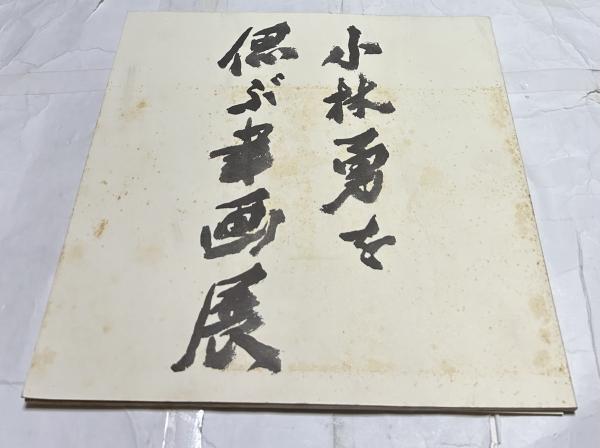 小林勇を
偲ぶ書画展